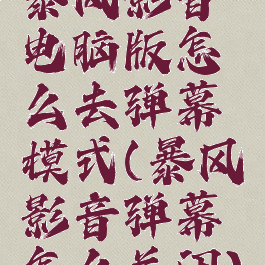 暴风影音
电脑版怎
么去弹幕
模式(暴风
影音弹幕
怎么关闭)